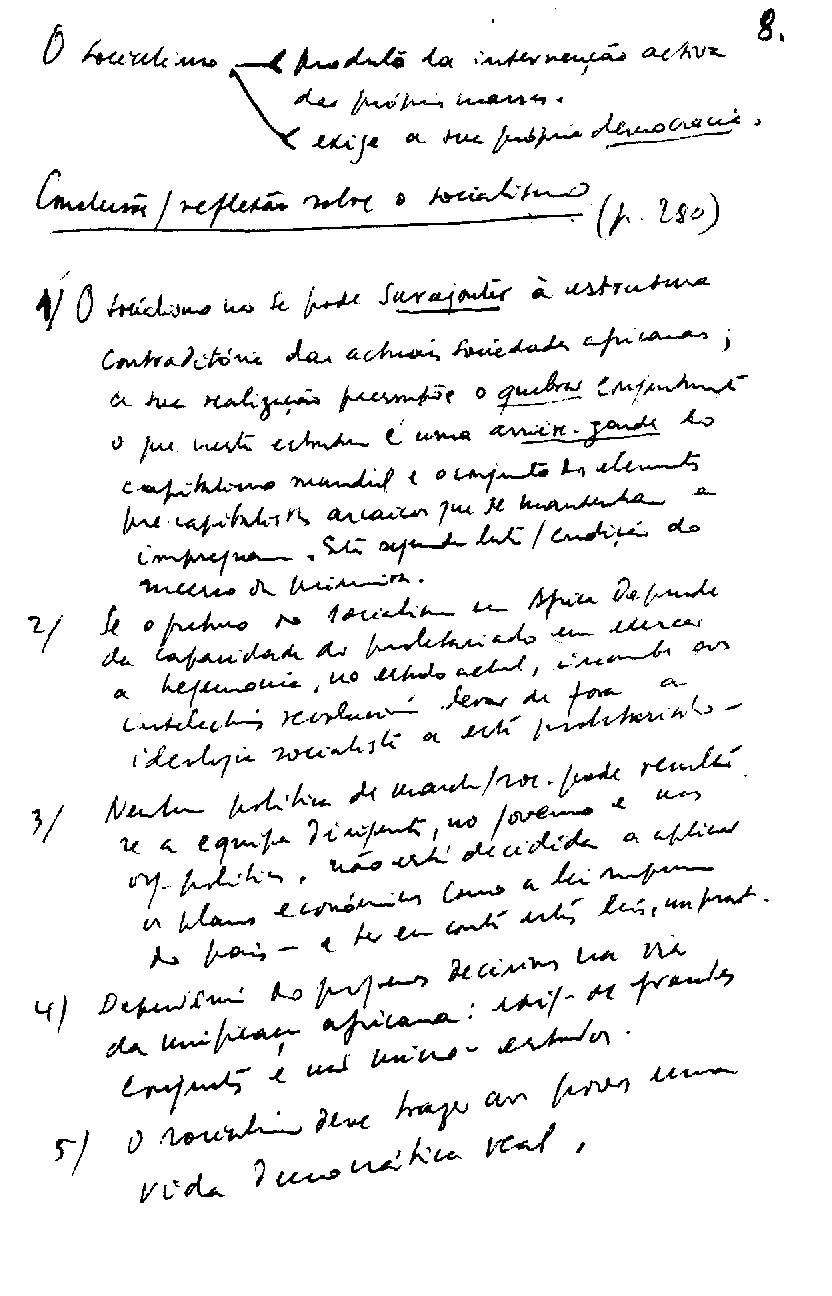 8.
O socialismo — produto da intervenção activa
das próprias massas.
exige a sua própria democracia.
Conclusão / reflexão sobre o socialismo (p. 280)
1/ O socialismo não se pode surajouter à estrutura
contraditória das actuais sociedades africanas;
a sua realização pressupõe o quebrar conjuntamente
o que nesta estrutura é uma arrière-garde do
capitalismo mundial e o conjunto dos elementos
pre-capitalistas arcaicos que se mantenham e
impregnam. Esta segunda luta / condição do
sucesso da primeira.
2/ Se o futuro do socialismo em Africa depende
da capacidade do proletariado em exercer
a hegemonia, no estado actual, incumbe aos
intelectuais levar de fora a
ideologia socialista a este proletariado -
3/ Nenhuma política de marcha/soc. pode resultar
se a equipa dirigente, no governo e nas
org. políticas, não está decidida a aplicar
os planos económicos como a lei suprema
do país — e ter em conta estas leis,
4/ do progresso decisivo na via
da unificação africana: exig- de grandes
conjuntos e não micro-estados.
5/ O socialismo deve trazer aos povos uma
vida democrática real.